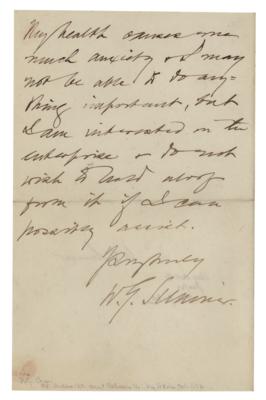 My health causes me
much anxiety & I may
not be able to do any-
thing important, but
I am interested in the
enterprise & do not
wish to hold aloof
from it if I can
possibly assist.
Yours truly
W. G. Sumner.